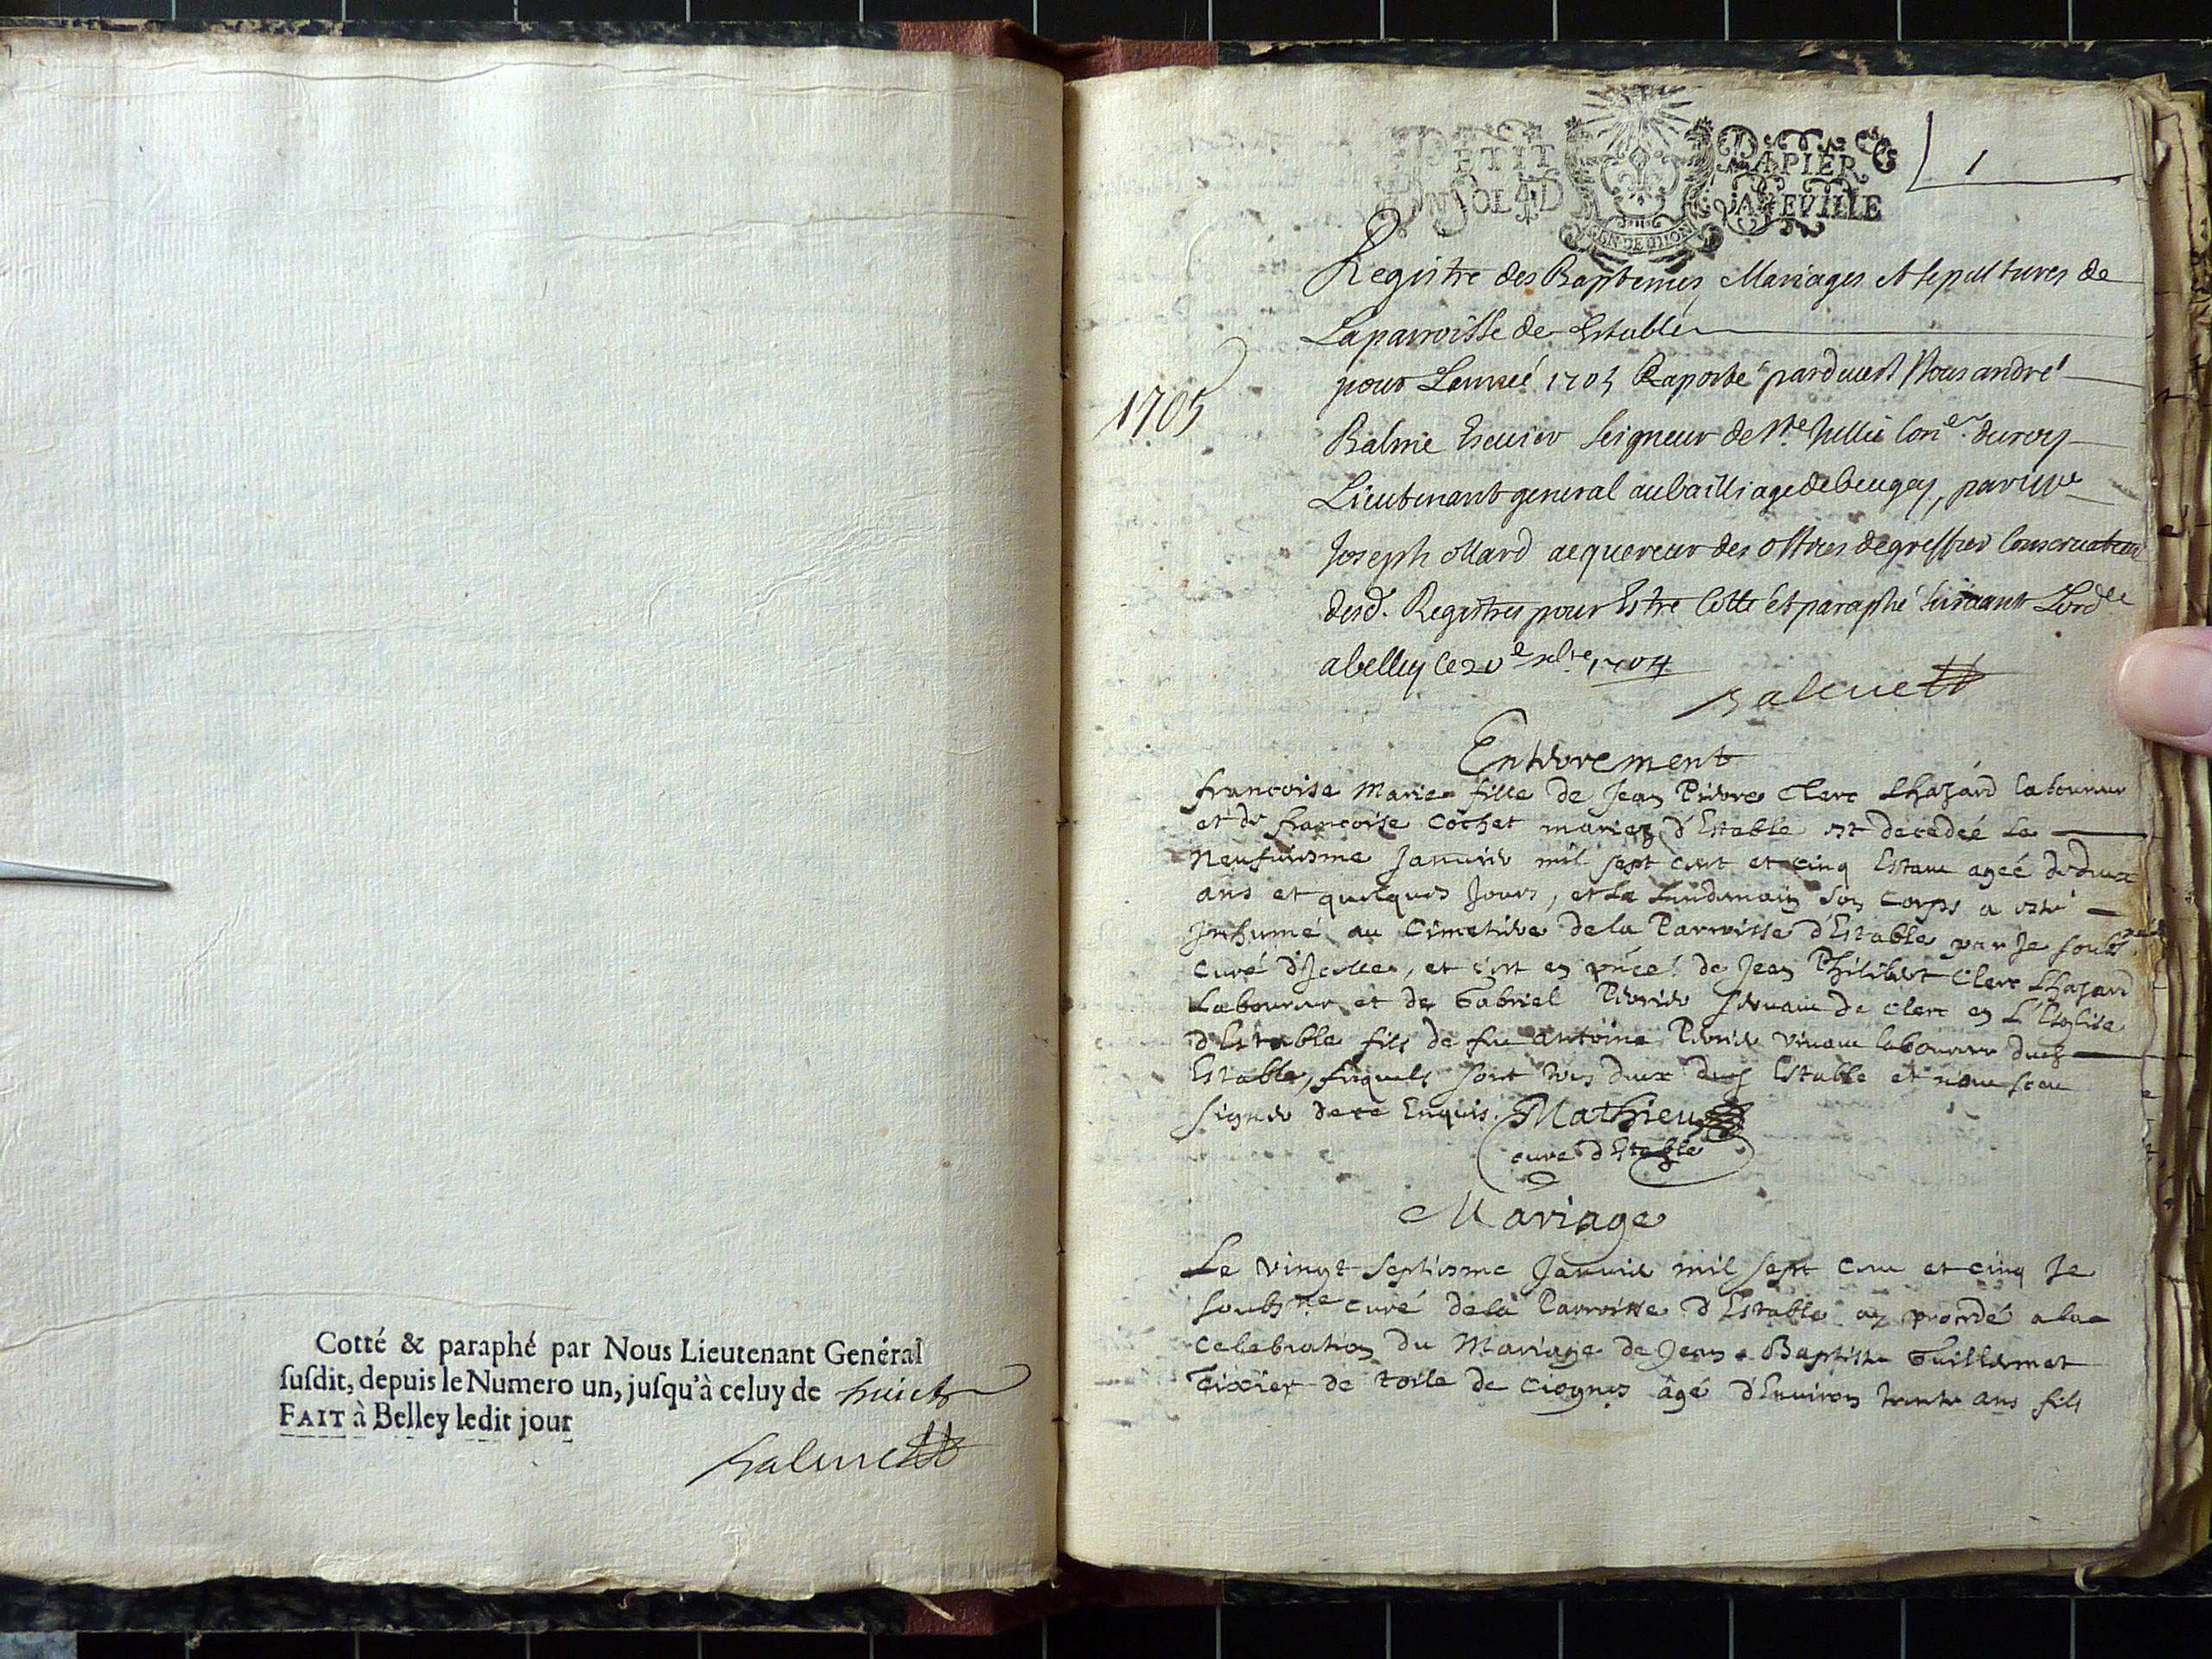 Cotté & paraphé par Nous Lieutenant General
ſuſdit, depuis le Numero un, juſqu'à celuy de huict
FAIT à Belley ledit jour
Balme
PETIT PAPIER
UN SOL 4 D LA FEVILLE
GEN DE DIION
1
Registre des Baptemes Mariages et sepultures de
La parroisse de Estable
1705
pour Lanneé 1705 Raporté pardevert Nous andré
Balme Escuier Seigneur de Ste Jullie Coner. du roy
Lieutenant general au bailliage de beugey, par
Joseph ollard acquereur des offices de greffier Conservateur
desd. Registres pour Estre Cotté et paraphé suivant Lord
a belley ce 20e 1704
Balme
Enterement
francoise Marie fille de Jean Pierre Clerc Lhazard laboureur
et de francoise Cochet mariez d'Estable est decedeé le
neufuiesme Januier mil sept cent et cinq Estant ageé de deux
ans et quelques Jours, et le lendemain son corps a esté
Inhumé au Cimetiere de la Parroisse d'Estable par Je soubs né
curé d'Icelle, et c'est en pñce de Jean Philibert Clerc Lhazard
Laboureur et de Gabriel Peuric seruant de clerc en L'Esglise
d'Estable fils de feu Antoine Peuric viuant laboureur dudt
Estable, lesquels sont tous deux dudt Estable et n'ont sceu
signer de ce Enquis. Mathieu
curé d'Estable
Mariage
Le vingt septiesme Januier mil sept cent et cinq Je
soubs né curé de la Parroisse d'Estable ay procedé a la
celebration du Mariage de Jean Baptiste Guillermet
Tixier de toile de ciognes âgé d'Enuiron trente ans fils